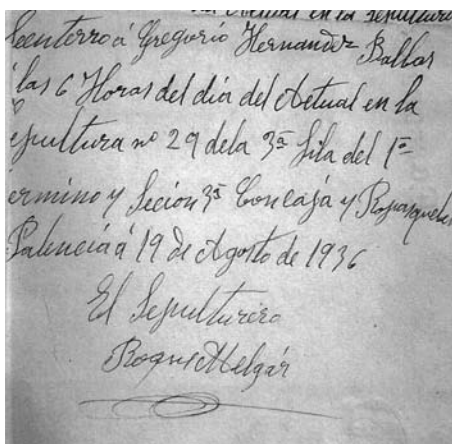 del Actual en la Sepultura
Seenterro á Gregorio Hernandez Balbas
á las 6 Horas del dia del Actual en la
epultura nº 29 dela 3ª fila del 1º
ermino y Secion 3ª Con caja y Ropas que
Palencia á 19 de Agosto de 1936
El Sepulturero
Roque Melgár